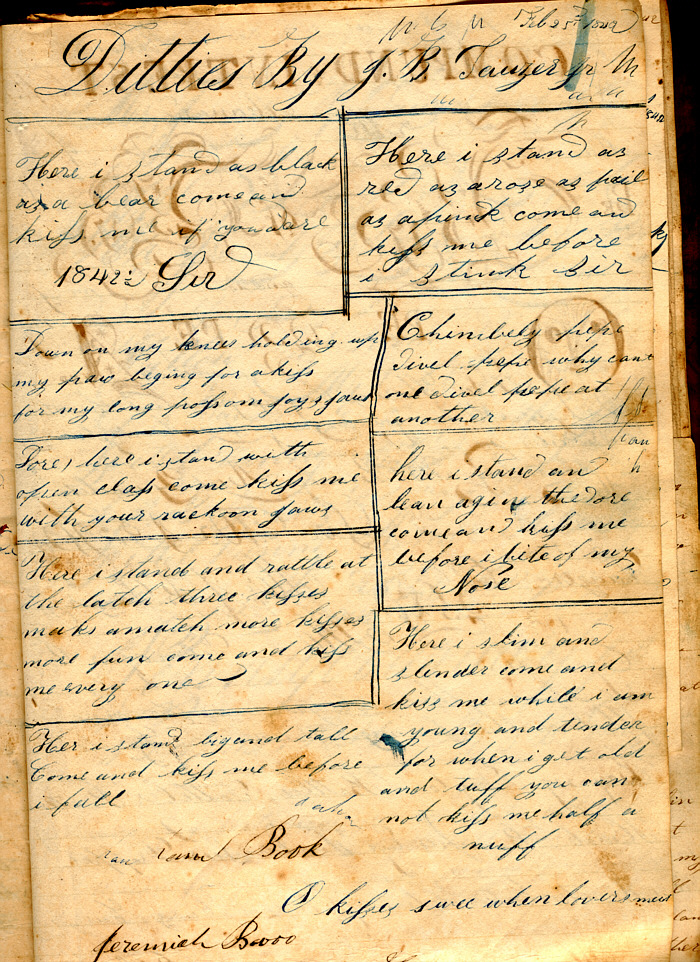 Feb 25th 1842
Ditties By J. B. Tauzer jr
Here i stand as black
as a bear come and
kiss me if you dare
1842 Sir
Here i stand as
red as a rose as pail
as a pink come and
kiss me before
i stink sir
Down on my knees holding up
my paw beging for a kiss
for my long possom joys jaws
Chimbely pepe
divel pepe why cant
one divel pepe at
another
here i stan with
open class come kiss me
with your rackoon jaws
here i stand an
lean agin the dore
come and kiss me
before i bite of my
Nose
Here i stand and rattle at
the latch three kisses
maks a match more kisses
more fun come and kiss
me every one
Here i slim and
slender come and
kiss me while i am
young and tender
for when i get old
and tuff you can
not kiss me half a
nuff
Her i stand big and tall
Come and kiss me before
i fall
Book
O kisses swee when lovers meet
Jeremiah